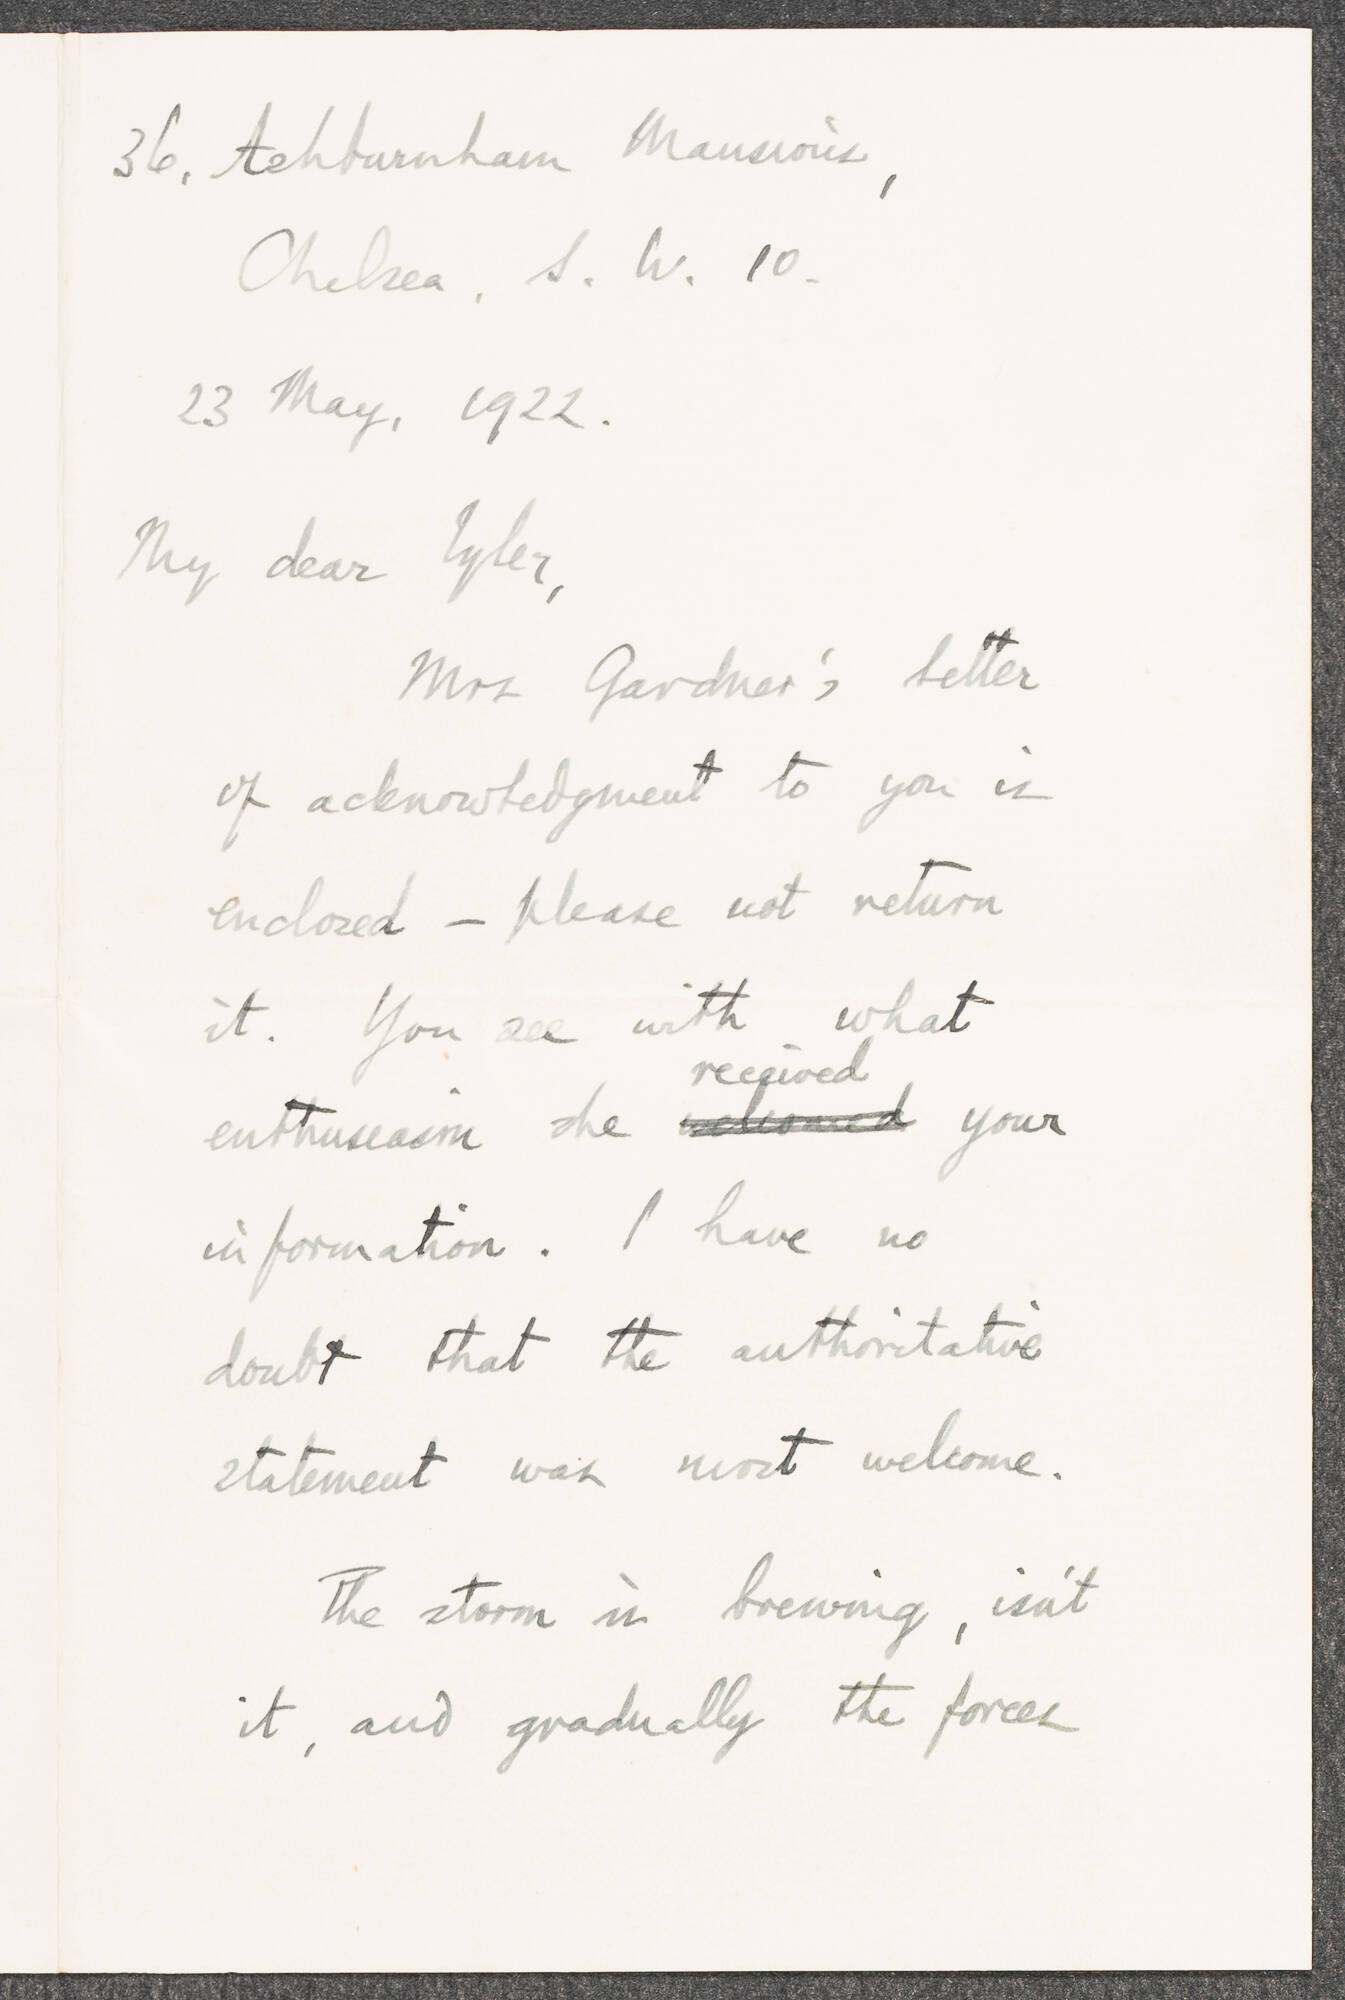 36, Ashburnham Mansions,
Chelsea, S. W. 10.
23 May, 1922.
My dear Tyler,
Mrs Gardner's letter
of acknowledgment to you is
enclosed – please not return
it. You see with what
received
enthuseasm she welcomed your
information. I have no
doubt that the authoritative
statement was most welcome.
The storm is brewing, isn't
it, and gradually the forces